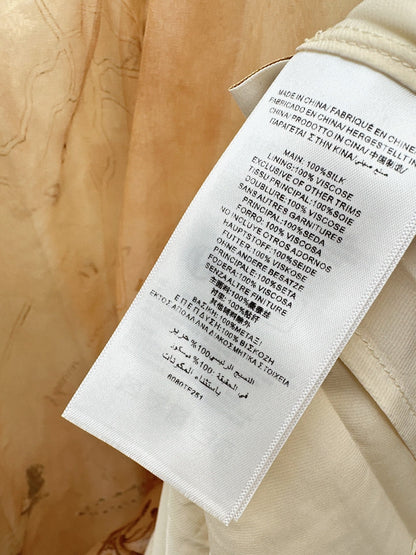 MADE IN CHINA/ FABRIQUÉ EN CHINE/
FABRICADO EN CHINA/ HERGESTELLT IN
CHINA/ PRODOTTO IN CINA/ 中国制造/
ΠΑΡΑΓΕΤΑΙ ΣΤΗΝ ΚΙΝΑ/ صنع في الصين
MAIN: 100% SILK
LINING: 100% VISCOSE
EXCLUSIVE OF OTHER TRIMS
TISSU PRINCIPAL: 100% SOIE
DOUBLURE: 100% VISCOSE
SANS AUTRES GARNITURES
PRINCIPAL: 100% SEDA
FORRO: 100% VISCOSA
NO INCLUYE OTROS ADORNOS
HAUPTSTOFF: 100% SEIDE
FUTTER: 100% VISKOSE
OHNE ANDERE BESÄTZE
PRINCIPALE: 100% SETA
FODERA: 100% VISCOSA
SENZA ALTRE FINITURE
主面料: 100% 桑蚕丝
里料: 100% 粘纤
其他辅料除外
ΒΑΣΙΚΗ: 100% ΜΕΤΑΞΙ
ΕΠΕΝΔΥΣΗ: 100% ΒΙΣΚΟΖΗ
ΕΚΤΟΣ ΑΠΟ ΑΛΛΑ ΔΙΑΚΟΣΜΗΤΙΚΑ ΣΤΟΙΧΕΙΑ
النسيج الرئيسي 100% حرير
باستثناء المكونات